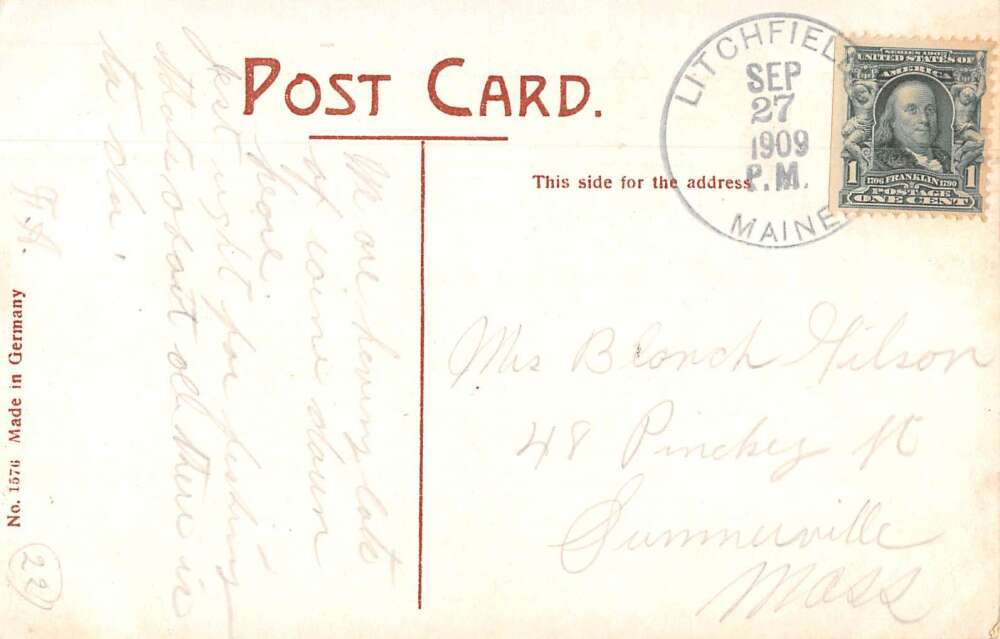 POST CARD.
This side for the address
LITCHFIEL
SEP
27
1909
P.M.
MAINE
SERIES 1902
UNITED STATES OF
AMERICA
1 1
1706 FRANKLIN 1790
POSTAGE
ONE CENT
We are having lots
of caine down
here.
Just right for festing
thats about all there is
to sla.
F.A.
Mrs Blanch Gilson
48 Pinckey St
Summerville
Mass
No. 1576 Made in Germany
22